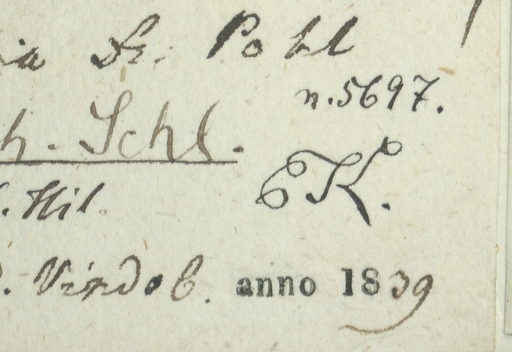 ia Dr. Pohl
n. 5697.
h. Schl.
EK.
. Hil.
. Vindob. anno 1839